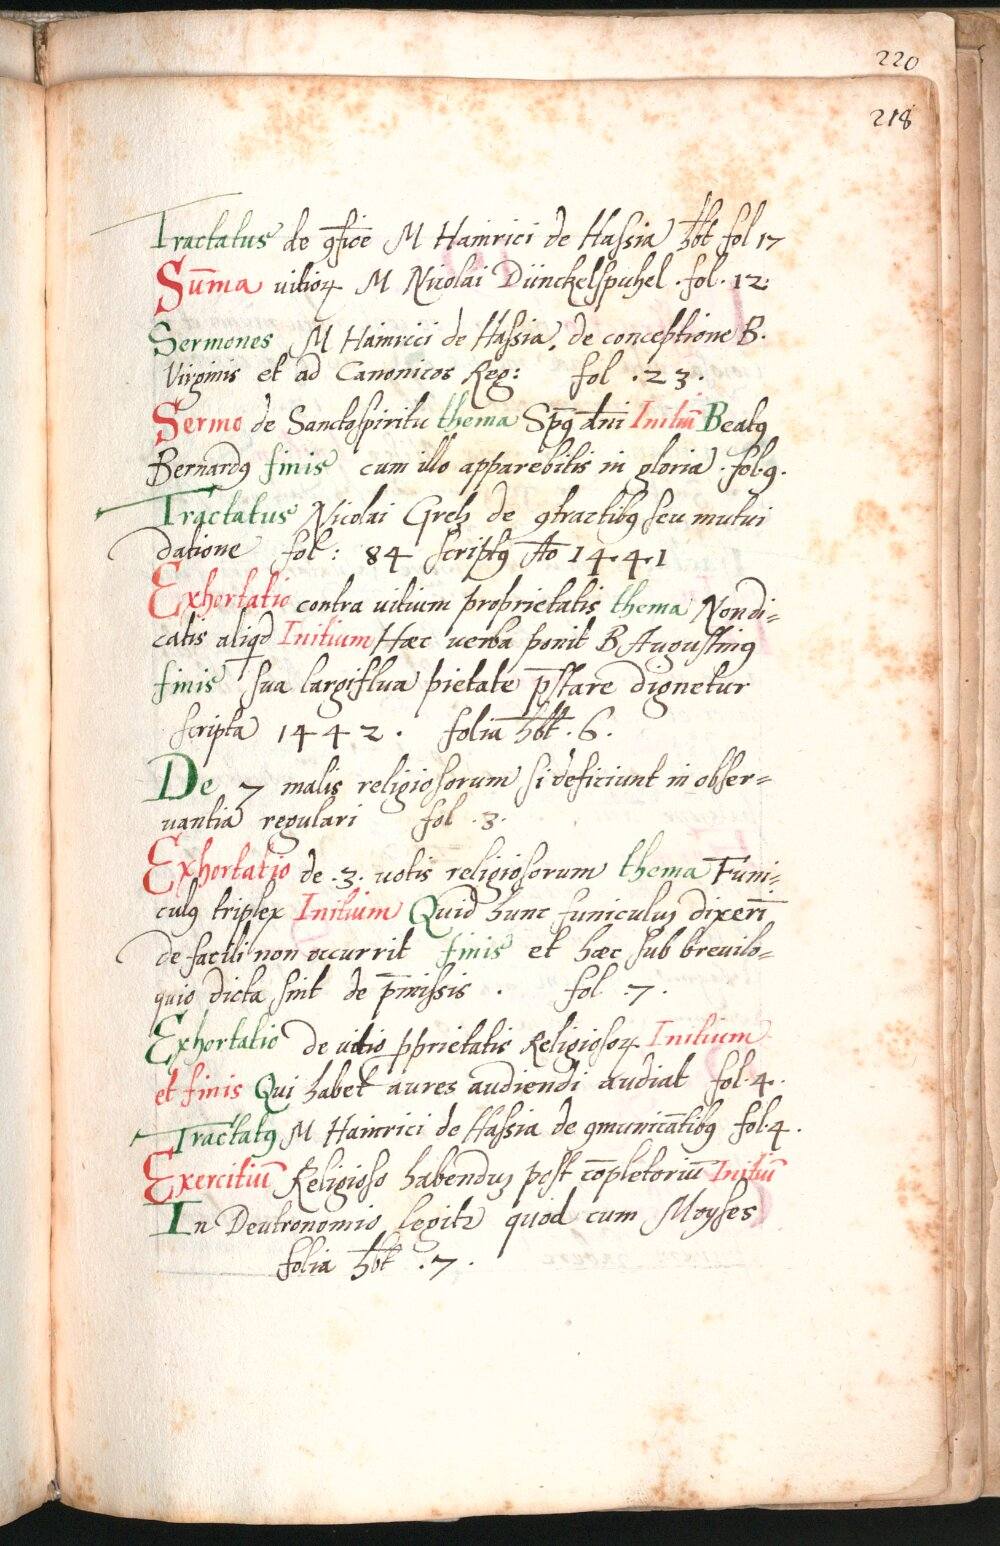 220
218
Tractatus de ꝯfiōe M Hainrici de Hassia hb̄t fol 17
Sūma uitioꝝ M Nicolai Dünckelspuhel . fol . 12.
Sermones M Hainrici de Hassia. de conceptione B.
Virginis et ad Canonicos Reg: fol . 23 .
Sermo de Sancto spiritu thema Spꝰ dn̄i Initiū Beatꝰ
Bernardꝰ finis cum illo apparebitis in gloria . fol . 9 .
Tractatus Nicolai Gretz de ꝯtractibꝰ seu mutui
datione fol : 84 scriptꝰ A̅o 1441
Exhortatio contra uitium proprietatis thema Non di⸗
catis aliqd Initium Hæc uerba ponit B Augustinꝰ
finis sua largiflua pietate p̄stare dignetur
scripta 1442 . folia hb̄t . 6 .
De 7 malis religiosorum si deficiunt in obser⸗
uantia regulari fol . 3 .
Exhortatio de . 3 . uotis religiosorum thema Funi⸗
culꝰ triplex Initium Quid hunc funiculuʒ dixerī
de facili non occurrit finis et hæc sub breuilo⸗
quio dicta sint de p̄missis . fol . 7 .
Exhortatio de uitio ꝓprietatis Religiosoꝝ Initium
et finis Qui habet aures audiendi audiat fol . 4 .
Tractatꝰ M Hainrici de Hassia de ꝯmunicātibꝰ fol . 4 .
Exercitiū Religioso habenduʒ post cōpletoriū Initiū
In Deutronomio legitꝛ quod cum Moyses
folia hb̄t . 7 .